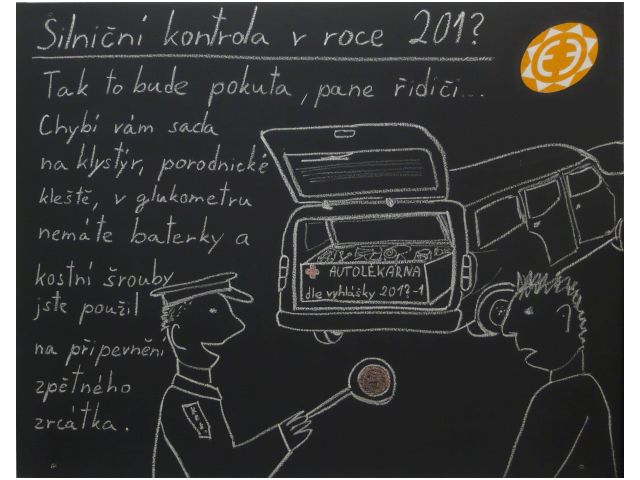 Silniční kontrola v roce 201?
Tak to bude pokuta, pane řidiči...
Chybí vám sada
na klystýr, porodnické
kleště, v glukometru
nemáte baterky a
kostní šrouby
jste použil
na připevnění
zpětného
zrcátka.
AUTOLÉKÁRNA
dle vyhlášky 201?-1